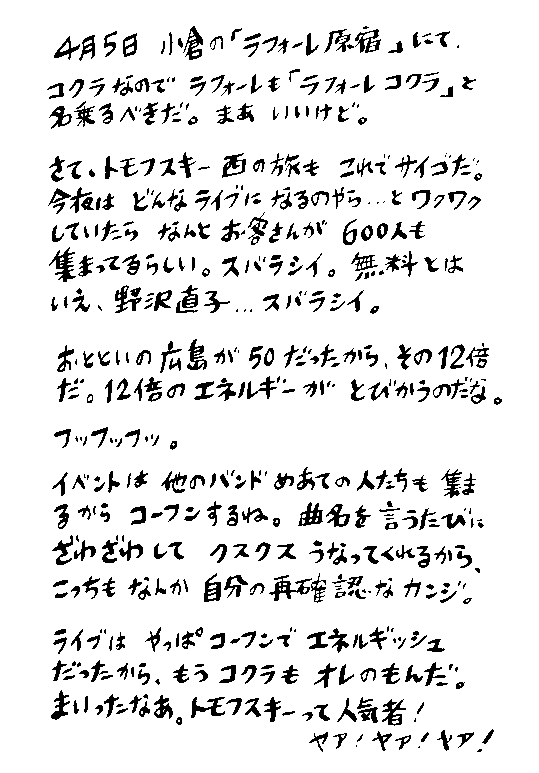 4月5日 小倉の「ラフォーレ原宿」にて、
コクラなので ラフォーレも「ラフォーレ コクラ」と
名乗るべきだ。まあ いいけど。
さて、トモフスキー 西の旅も これでサイゴだ。
今夜は どんなライブに なるのやら…と ワクワク
していたら なんと お客さんが 600人も
集まってるらしい。スバラシイ。無料とは
いえ、野沢直子…スバラシイ。
おとといの広島が50だったから、その12倍
だ。12倍のエネルギーが とびかうのだな。
フッフッフッ。
イベントは 他のバンドめあての人たちも 集ま
るから コーフンするね。曲名を言うたびに
ざわざわして クスクス うなってくれるから、
こっちも なんか 自分の再確認なカンジ。
ライブは やっぱ コーフンで エネルギッシュ
だったから、もう コクラも オレのもんだ。
まいったなあ。トモフスキーって人気者！
ヤア！ヤア！ヤア！